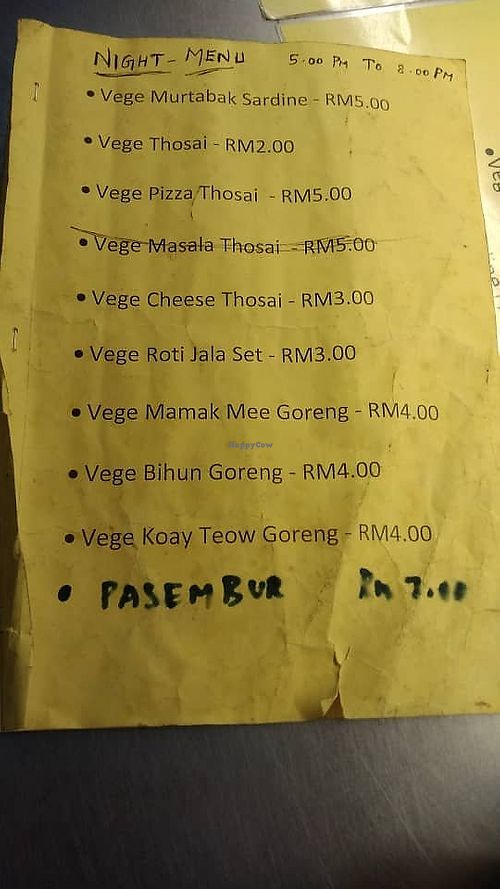 NIGHT-MENU 5.00 PM TO 8.00 PM
• Vege Murtabak Sardine - RM5.00
• Vege Thosai - RM2.00
• Vege Pizza Thosai - RM5.00
• Vege Masala Thosai - RM5.00
• Vege Cheese Thosai - RM3.00
• Vege Roti Jala Set - RM3.00
• Vege Mamak Mee Goreng - RM4.00
HappyCow
• Vege Bihun Goreng - RM4.00
• Vege Koay Teow Goreng - RM4.00
• PASEMBUR RM 7.00